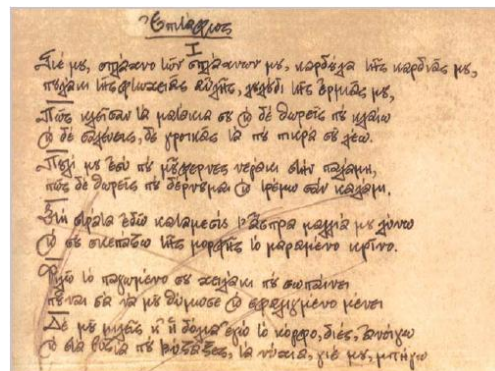 Ἐπιτάφιος
I
Γιέ μου, σπλάχνο τῶν σπλάχνων μου, καρδούλα τῆς καρδιᾶς μου,
πουλάκι τῆς φτωχειᾶς αὐλῆς, λουλούδι τῆς ἐρμιᾶς μου,
Πῶς κλεῖσαν τὰ ματάκια σου καὶ δὲ θωρεῖς ποὺ κλαίω
καὶ δὲ σαλεύεις, δὲ γροικᾶς τὰ ποὺ πικρὰ σοῦ λέω.
Πουλί μου ἐσὺ ποὺ μοῦφερνες νεράκι στὴν παλάμη,
πῶς δὲ θωρεῖς ποὺ δέρνουμαι καὶ τρέμω σὰν καλάμι.
Στὴ στράτα ἐδῶ καταμεσὶς τ' ἄσπρα μαλλιά μου λύνω
καὶ σοῦ σκεπάζω τῆς μορφῆς τὸ μαραμένο κρίνο.
Φιλῶ τὸ παγωμένο σου χειλάκι ποὺ σωπαίνει
ποῦναι σὰ νὰ μοῦ θύμωσε καὶ σφαλιγμένο μένει
Δέ μοῦ μιλεῖς κ' ἡ δόλια ἐγὼ τὸν κόρφο, διές, ἀνοίγω
καὶ στὰ βυζιὰ ποὺ βύζαξες, τὰ νύχια, γιέ μου, μπήγω